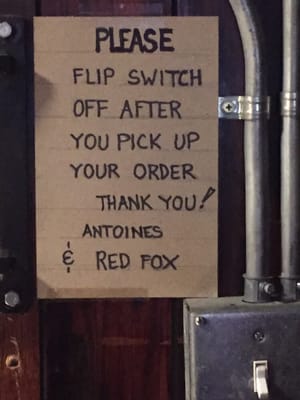 PLEASE
FLIP SWITCH
OFF AFTER
YOU PICK UP
YOUR ORDER
THANK YOU!
ANTOINES
& RED FOX